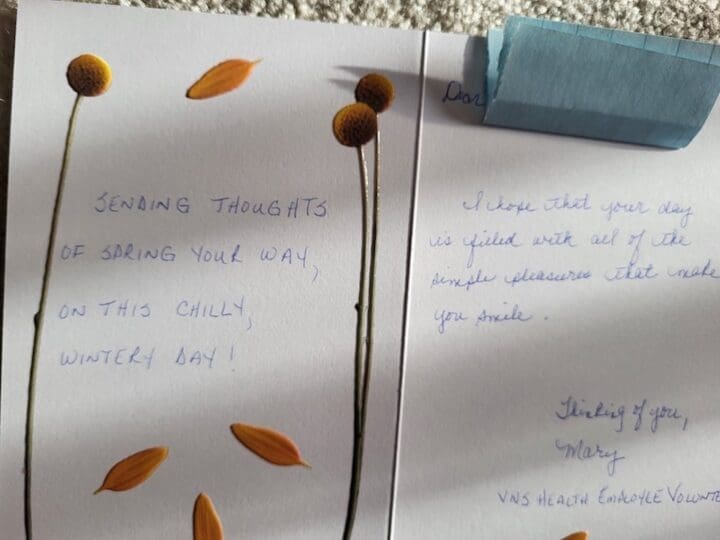 SENDING THOUGHTS
OF SPRING YOUR WAY,
ON THIS CHILLY,
WINTERY DAY!
Dear
I hope that your day
is filled with all of the
simple pleasures that make
you smile.
Thinking of you,
Mary
VNS HEALTH EMPLOYEE VOLUNTE